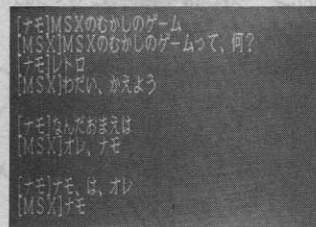 [ナモ]MSXのむかしのゲーム
[MSX]MSXのむかしのゲームって、何?
[ナモ]レトロ
[MSX]わだい、かえよう
[ナモ]なんだおまえは
[MSX]オレ、ナモ
[ナモ]ナモ、は、オレ
[MSX]ナモ